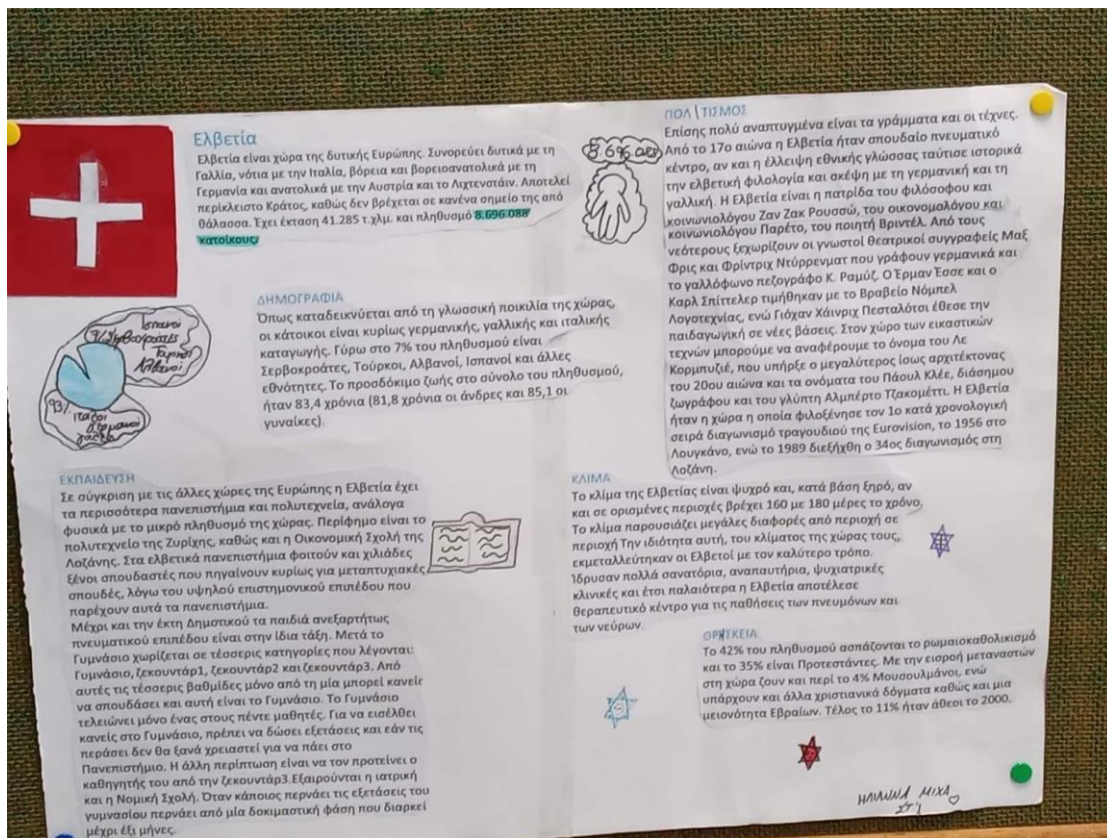 Ελβετία
Ελβετία είναι χώρα της δυτικής Ευρώπης. Συνορεύει δυτικά με τη
Γαλλία, νότια με την Ιταλία, βόρεια και βορειοανατολικά με τη
Γερμανία και ανατολικά με την Αυστρία και το Λιχτενστάιν. Αποτελεί
περίκλειστο Κράτος, καθώς δεν βρέχεται σε κανένα σημείο της από
θάλασσα. Έχει έκταση 41.285 τ.χλμ. και πληθυσμό 8.696.088
κατοίκους
ΔΗΜΟΓΡΑΦΙΑ
Όπως καταδεικνύεται από τη γλωσσική ποικιλία της χώρας,
οι κάτοικοι είναι κυρίως γερμανικής, γαλλικής και ιταλικής
καταγωγής. Γύρω στο 7% του πληθυσμού είναι
Σερβοκροάτες, Τούρκοι, Αλβανοί, Ισπανοί και άλλες
εθνότητες. Το προσδόκιμο ζωής στο σύνολο του πληθυσμού,
ήταν 83,4 χρόνια (81,8 χρόνια οι άνδρες και 85,1 οι
γυναίκες).
Ισπανοί
7%
Αλβανοί
93%
ιταλοί
ΕΚΠΑΙΔΕΥΣΗ
Σε σύγκριση με τις άλλες χώρες της Ευρώπης η Ελβετία έχει
τα περισσότερα πανεπιστήμια και πολυτεχνεία, ανάλογα
φυσικά με το μικρό πληθυσμό της χώρας. Περίφημο είναι το
πολυτεχνείο της Ζυρίχης, καθώς και η Οικονομική Σχολή της
Λοζάνης. Στα ελβετικά πανεπιστήμια φοιτούν και χιλιάδες
ξένοι σπουδαστές που πηγαίνουν κυρίως για μεταπτυχιακές
σπουδές, λόγω του υψηλού επιστημονικού επιπέδου που
παρέχουν αυτά τα πανεπιστήμια.
Μέχρι και την έκτη Δημοτικού τα παιδιά ανεξαρτήτως
πνευματικού επιπέδου είναι στην ίδια τάξη. Μετά το
Γυμνάσιο χωρίζεται σε τέσσερις κατηγορίες που λέγονται:
Γυμνάσιο, ζεκουντάρ1, ζεκουντάρ2 και ζεκουντάρ3. Από
αυτές τις τέσσερις βαθμίδες μόνο από τη μία μπορεί κανείς
να σπουδάσει και αυτή είναι το Γυμνάσιο. Το Γυμνάσιο
τελειώνει μόνο ένας στους πέντε μαθητές. Για να εισέλθει
κανείς στο Γυμνάσιο, πρέπει να δώσει εξετάσεις και εάν τις
περάσει δεν θα ξανά χρειαστεί για να πάει στο
Πανεπιστήμιο. Η άλλη περίπτωση είναι να τον προτείνει ο
καθηγητής του από την ζεκουντάρ3.Εξαιρούνται η ιατρική
και η Νομική Σχολή. Όταν κάποιος περνάει τις εξετάσεις του
γυμνασίου περνάει από μία δοκιμαστική φάση που διαρκεί
μέχρι έξι μήνες.
ΠΟΛΙΤΙΣΜΟΣ
Επίσης πολύ αναπτυγμένα είναι τα γράμματα και οι τέχνες.
Από το 17ο αιώνα η Ελβετία ήταν σπουδαίο πνευματικό
κέντρο, αν και η έλλειψη εθνικής γλώσσας ταύτισε ιστορικά
την ελβετική φιλολογία και σκέψη με τη γερμανική και τη
γαλλική. Η Ελβετία είναι η πατρίδα του φιλόσοφου και
κοινωνιολόγου Ζαν Ζακ Ρουσσώ, του οικονομολόγου και
κοινωνιολόγου Παρέτο, του ποιητή Βριντέλ. Από τους
νεότερους ξεχωρίζουν οι γνωστοί θεατρικοί συγγραφείς Μαξ
Φρις και Φρίντριχ Ντύρρενματ που γράφουν γερμανικά και
το γαλλόφωνο πεζογράφο Κ. Ραμύζ. Ο Έρμαν Έσσε και ο
Καρλ Σπίττελερ τιμήθηκαν με το Βραβείο Νόμπελ
Λογοτεχνίας, ενώ Γιόχαν Χάινριχ Πεσταλότσι έθεσε την
παιδαγωγική σε νέες βάσεις. Στον χώρο των εικαστικών
τεχνών μπορούμε να αναφέρουμε το όνομα του Λε
Κορμπυζιέ, που υπήρξε ο μεγαλύτερος ίσως αρχιτέκτονας
του 20ου αιώνα και τα ονόματα του Πάουλ Κλέε, διάσημου
ζωγράφου και του γλύπτη Αλμπέρτο Τζακομέττι. Η Ελβετία
ήταν η χώρα η οποία φιλοξένησε τον 1ο κατά χρονολογική
σειρά διαγωνισμό τραγουδιού της Eurovision, το 1956 στο
Λουγκάνο, ενώ το 1989 διεξήχθη ο 34ος διαγωνισμός στη
Λοζάνη.
ΚΛΙΜΑ
Το κλίμα της Ελβετίας είναι ψυχρό και, κατά βάση ξηρό, αν
και σε ορισμένες περιοχές βρέχει 160 με 180 μέρες το χρόνο.
Το κλίμα παρουσιάζει μεγάλες διαφορές από περιοχή σε
περιοχή Την ιδιότητα αυτή, του κλίματος της χώρας τους,
εκμεταλλεύτηκαν οι Ελβετοί με τον καλύτερο τρόπο.
Ίδρυσαν πολλά σανατόρια, αναπαυτήρια, ψυχιατρικές
κλινικές και έτσι παλαιότερα η Ελβετία αποτέλεσε
θεραπευτικό κέντρο για τις παθήσεις των πνευμόνων και
των νεύρων.
ΘΡΗΣΚΕΙΑ
Το 42% του πληθυσμού ασπάζονται το ρωμαιοκαθολικισμό
και το 35% είναι Προτεστάντες. Με την εισροή μεταναστών
στη χώρα ζουν και περί το 4% Μουσουλμάνοι, ενώ
υπάρχουν και άλλα χριστιανικά δόγματα καθώς και μια
μειονότητα Εβραίων. Τέλος το 11% ήταν άθεοι το 2000.
ΗΛΙΑΝΝΑ ΜΙΧΑ
ΣΤ'1